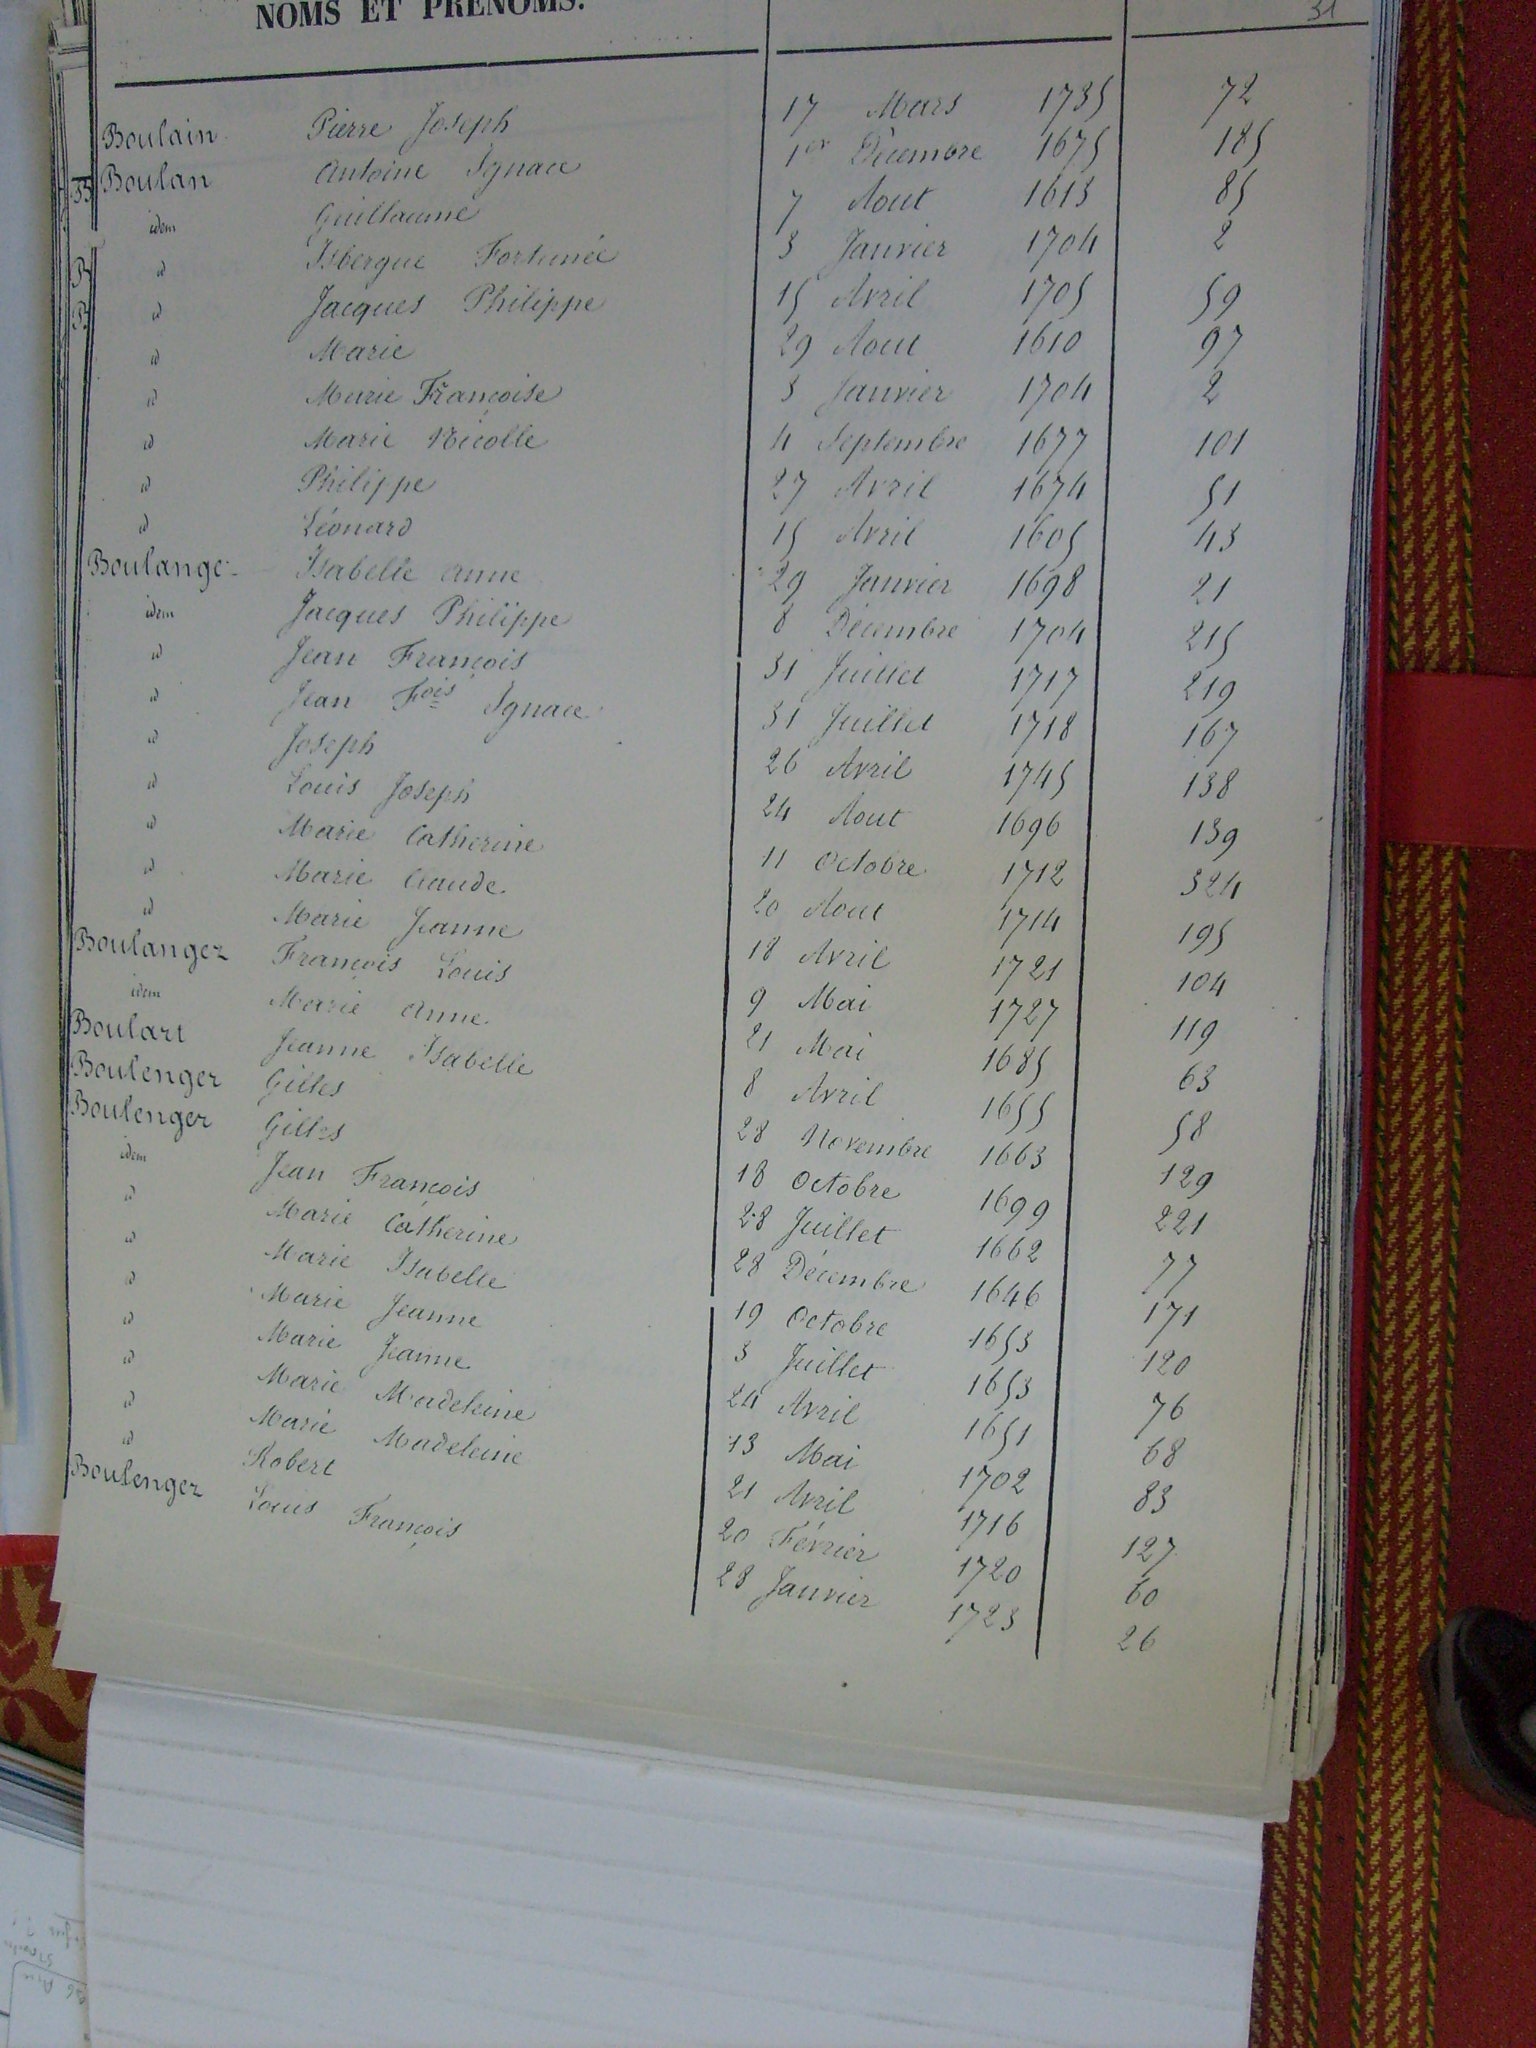 NOMS ET PRÉNOMS.
31
Boulain Pierre Joseph 17 Mars 1735 72
Boulan Antoine Ignace 1er Décembre 1675 185
idem Guillaume 7 Aout 1613 85
id Isbergue Fortunée 3 Janvier 1704 2
id Jacques Philippe 15 Avril 1705 59
id Marie 29 Aout 1610 97
id Marie Françoise 3 Janvier 1704 2
id Marie Nicolle 4 Septembre 1677 101
id Philippe 27 Avril 1674 51
id Léonard 15 Avril 1605 43
Boulange Isabelle Anne 29 Janvier 1698 21
idem Jacques Philippe 8 Décembre 1704 215
id Jean François 31 Juillet 1717 219
id Jean Fois Ignace 31 Juillet 1718 167
id Joseph 26 Avril 1745 138
id Louis Joseph 24 Aout 1696 139
id Marie Catherine 11 Octobre 1712 324
id Marie Claude 20 Aout 1714 195
id Marie Jeanne 18 Avril 1721 104
Boulanger François Louis 9 Mai 1727 119
idem Marie Anne 21 Mai 1685 63
Boulart Jeanne Isabelle 8 Avril 1655 58
Boulenger Gilles 28 Novembre 1663 129
Boulenger Gilles 18 Octobre 1699 221
idem Jean François 28 Juillet 1662 77
id Marie Catherine 28 Décembre 1646 171
id Marie Isabelle 19 Octobre 1653 120
id Marie Jeanne 3 Juillet 1653 76
id Marie Jeanne 24 Avril 1651 68
id Marie Madeleine 13 Mai 1702 83
id Marie Madeleine 21 Avril 1716 127
id Robert 20 Février 1720 60
Boulenger Louis François 28 Janvier 1723 26